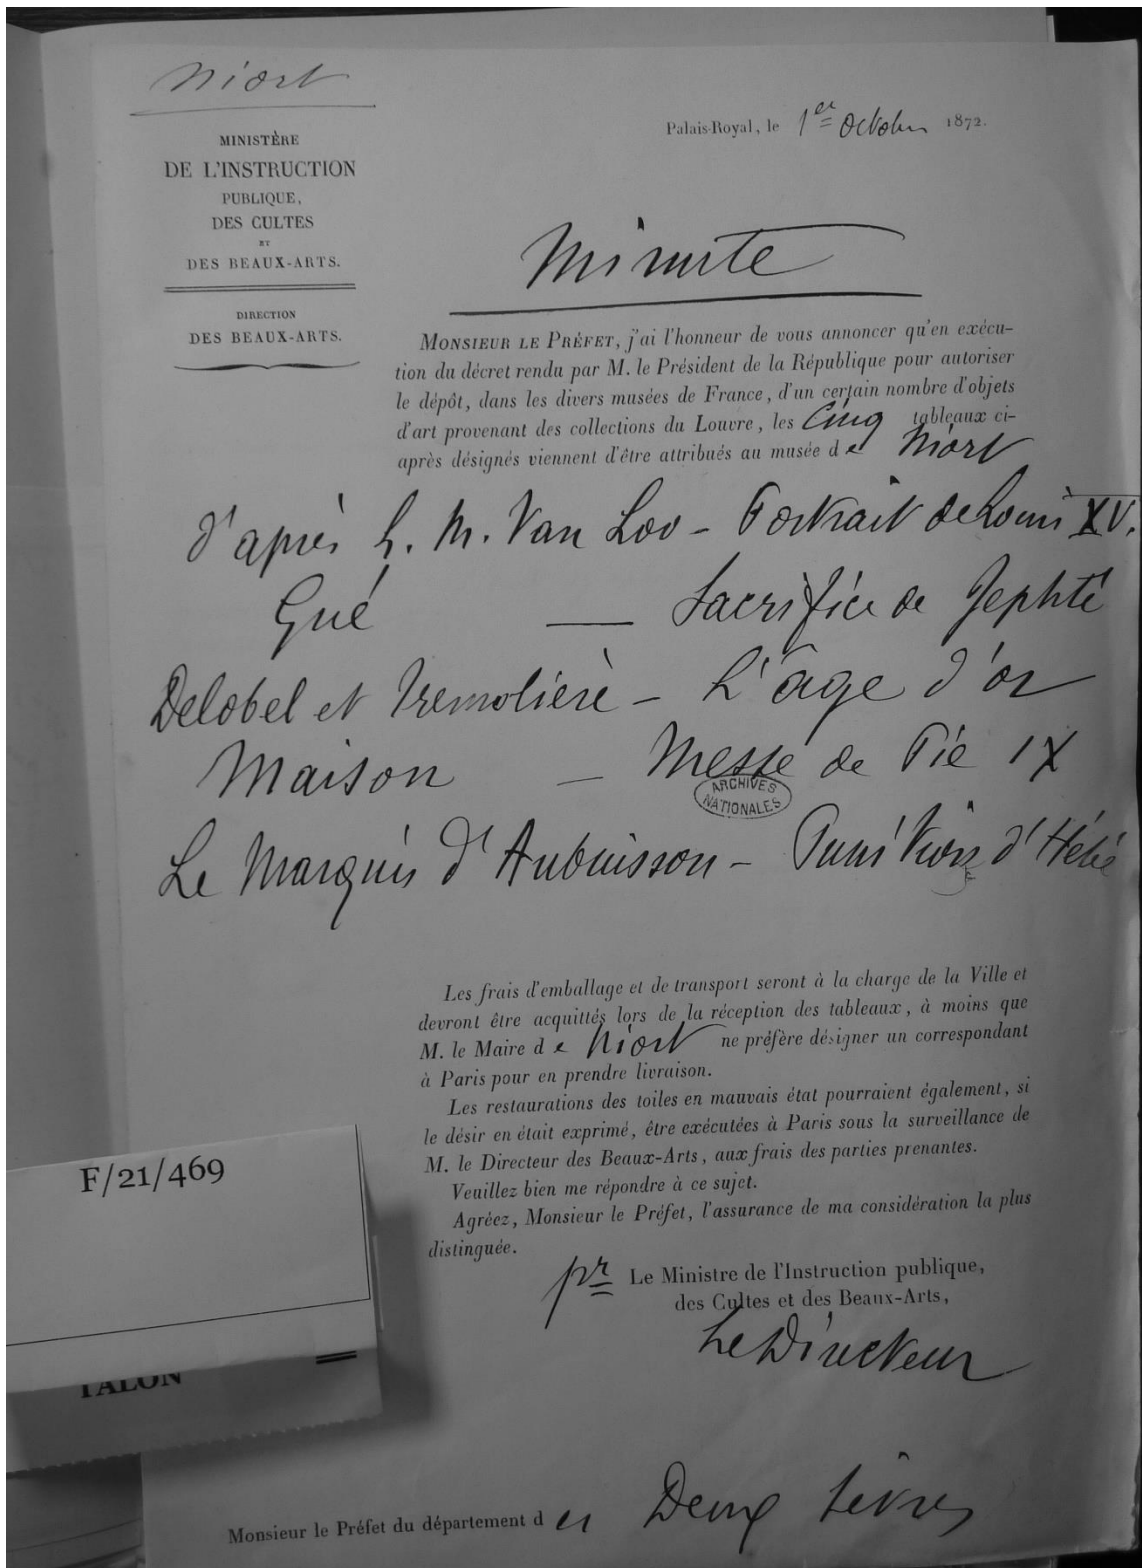 Niort
MINISTÈRE
DE L'INSTRUCTION
PUBLIQUE,
DES CULTES
ET
DES BEAUX-ARTS.
DIRECTION
DES BEAUX-ARTS.
Palais-Royal, le 1er octobre 1872.
Minute
MONSIEUR LE PRÉFET, j'ai l'honneur de vous annoncer qu'en exécu-
tion du décret rendu par M. le Président de la République pour autoriser
le dépôt, dans les divers musées de France, d'un certain nombre d'objets
d'art provenant des collections du Louvre, les Cinq tableaux ci-
après désignés viennent d'être attribués au musée de Niort
d'après L. M. Van Loo – Portrait de Louis XV.
Gué — Sacrifice de Jephté
Delobel et Tremolière – L'âge d'or
Maison – Messe de Pie IX
ARCHIVES
NATIONALES
Le Marquis d'Aubuisson – Punition d'Hébé
Les frais d'emballage et de transport seront à la charge de la Ville et
devront être acquittés lors de la réception des tableaux, à moins que
M. le Maire de Niort ne préfère désigner un correspondant
à Paris pour en prendre livraison.
Les restaurations des toiles en mauvais état pourraient également, si
le désir en était exprimé, être exécutées à Paris sous la surveillance de
M. le Directeur des Beaux-Arts, aux frais des parties prenantes.
Veuillez bien me répondre à ce sujet.
Agréez, Monsieur le Préfet, l'assurance de ma considération la plus
distinguée.
pr Le Ministre de l'Instruction publique,
des Cultes et des Beaux-Arts,
Le Directeur
F/21/469
TALON
Monsieur le Préfet du département des Deux Sèvres